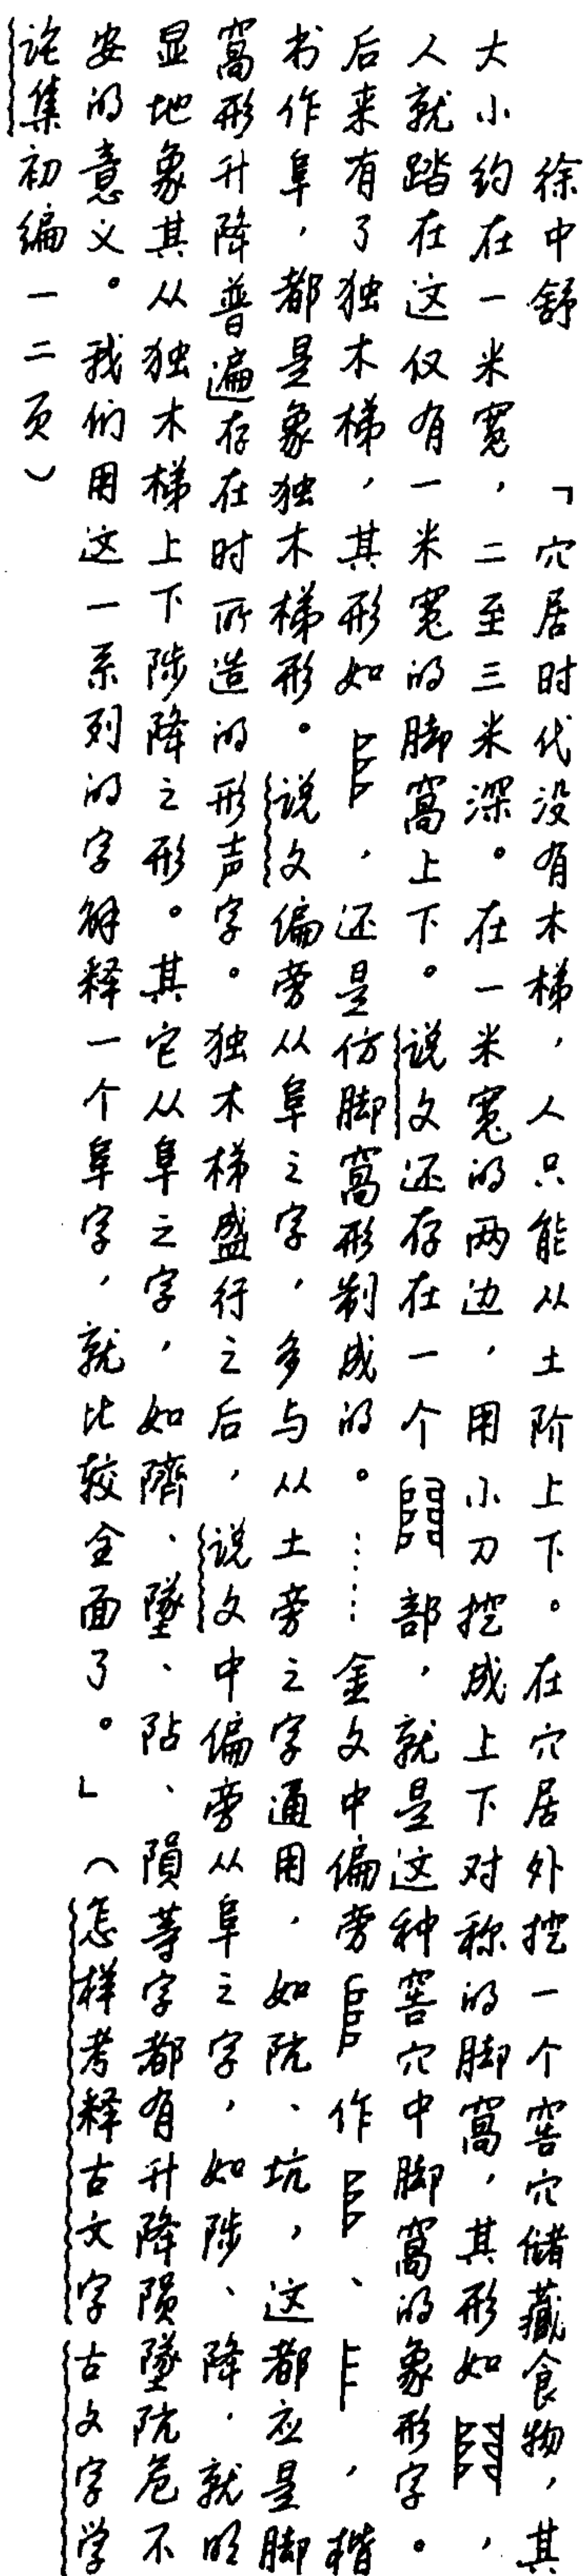 徐中舒　「穴居时代没有木梯，人只能从土阶上下。在穴居外挖一个窖穴储藏食物，其
大小约在一米宽，二至三米深。在一米宽的两边，用小刀挖成上下对称的脚窝，其形如，
人就踏在这仅有一米宽的脚窝上下。说文还存在一个部，就是这种窖穴中脚窝的象形字。
后来有了独木梯，其形如，还是仿脚窝形制成的。……金文中偏旁作、，楷
书作阜，都是象独木梯形。说文偏旁从阜之字，多与从土旁之字通用，如阬、坑，这都应是脚
窝形升降普遍存在时所造的形声字。独木梯盛行之后，说文中偏旁从阜之字，如陟、降，就明
显地象其从独木梯上下陟降之形。其它从阜之字，如隮、墜、阽、隕等字都有升降陨墜阬危不
安的意义。我们用这一系列的字解释一个阜字，就比较全面了。」（怎样考释古文字古文字学
论集初编一二页）